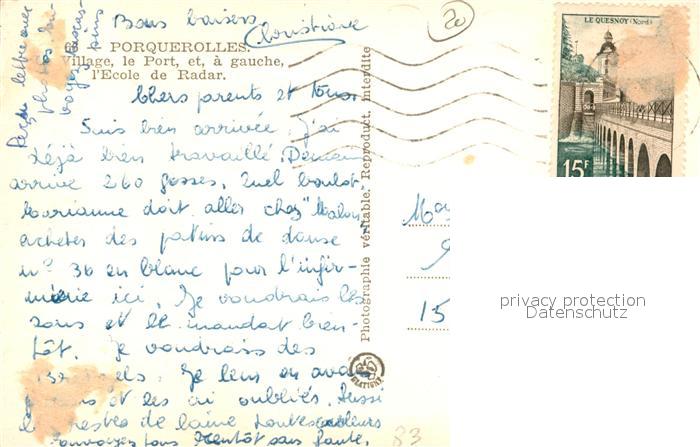 Bons baisers
Christiane
20
LE QUESNOY (Nord)
15F
PORQUEROLLES.
Village, le Port, et, à gauche,
l'Ecole de Radar.
Photographie véritable. Reproduct. interdite
Reçu lettre avec
photos
Chers parents et tous.
Suis bien arrivée. J'ai
déjà bien travaillé. Demain
arrive 260 gosses. Quel boulot
Marianne doit aller chez
acheter des patins de danse
n° 36 en blanc pour l'infir-
merie ici. Je voudrais les
sous et le mandat bien-
tôt. Je voudrais des
Je leur en avais
et les ai oubliés. Aussi
restes de laine toutes couleurs
bientôt sans faute.
15
83
privacy protection
Datenschutz